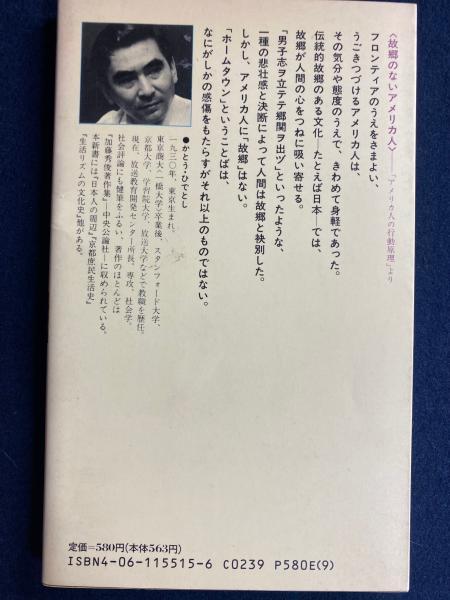 〈故郷のないアメリカ人〉――「アメリカ人の行動原理」より
フロンティアのうえをさまよい、
うごきつづけるアメリカ人は、
その気分や態度のうえで、きわめて身軽であった。
伝統的故郷のある文化――たとえば日本――では、
故郷が人間の心をつねに吸い寄せる。
「男子志ヲ立テテ郷関ヲ出ヅ」といったような、
一種の悲壮感と決断によって人間は故郷と袂別した。
しかし、アメリカ人に「故郷」はない。
「ホームタウン」ということばは、
なにがしかの感傷をもたらすがそれ以上のものではない。
●かとう・ひでとし
一九三〇年、東京生まれ。
東京商大(一橋大学)卒業後、スタンフォード大学、
京都大学、学習院大学、放送大学などで教職を歴任。
現在、放送教育開発センター所長。専攻、社会学。
社会評論にも健筆をふるい、著作のほとんどは
『加藤秀俊著作集』――中央公論社――に収められている。
本新書には『日本人の周辺』『京都庶民生活史』
『生活リズムの文化史』他がある。
定価=580円(本体563円)
ISBN4-06-115515-6 C0239 P580E(9)